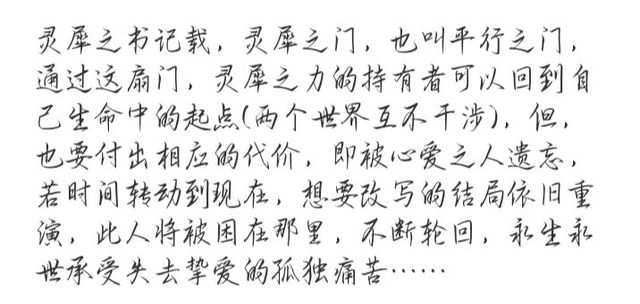 灵犀之书记载，灵犀之门，也叫平行之门，
通过这扇门，灵犀之力的持有者可以回到自
己生命中的起点(两个世界互不干涉)，但，
也要付出相应的代价，即被心爱之人遗忘，
若时间转动到现在，想要改写的结局依旧重
演，此人将被困在那里，不断轮回，永生永
世承受失去挚爱的孤独痛苦……